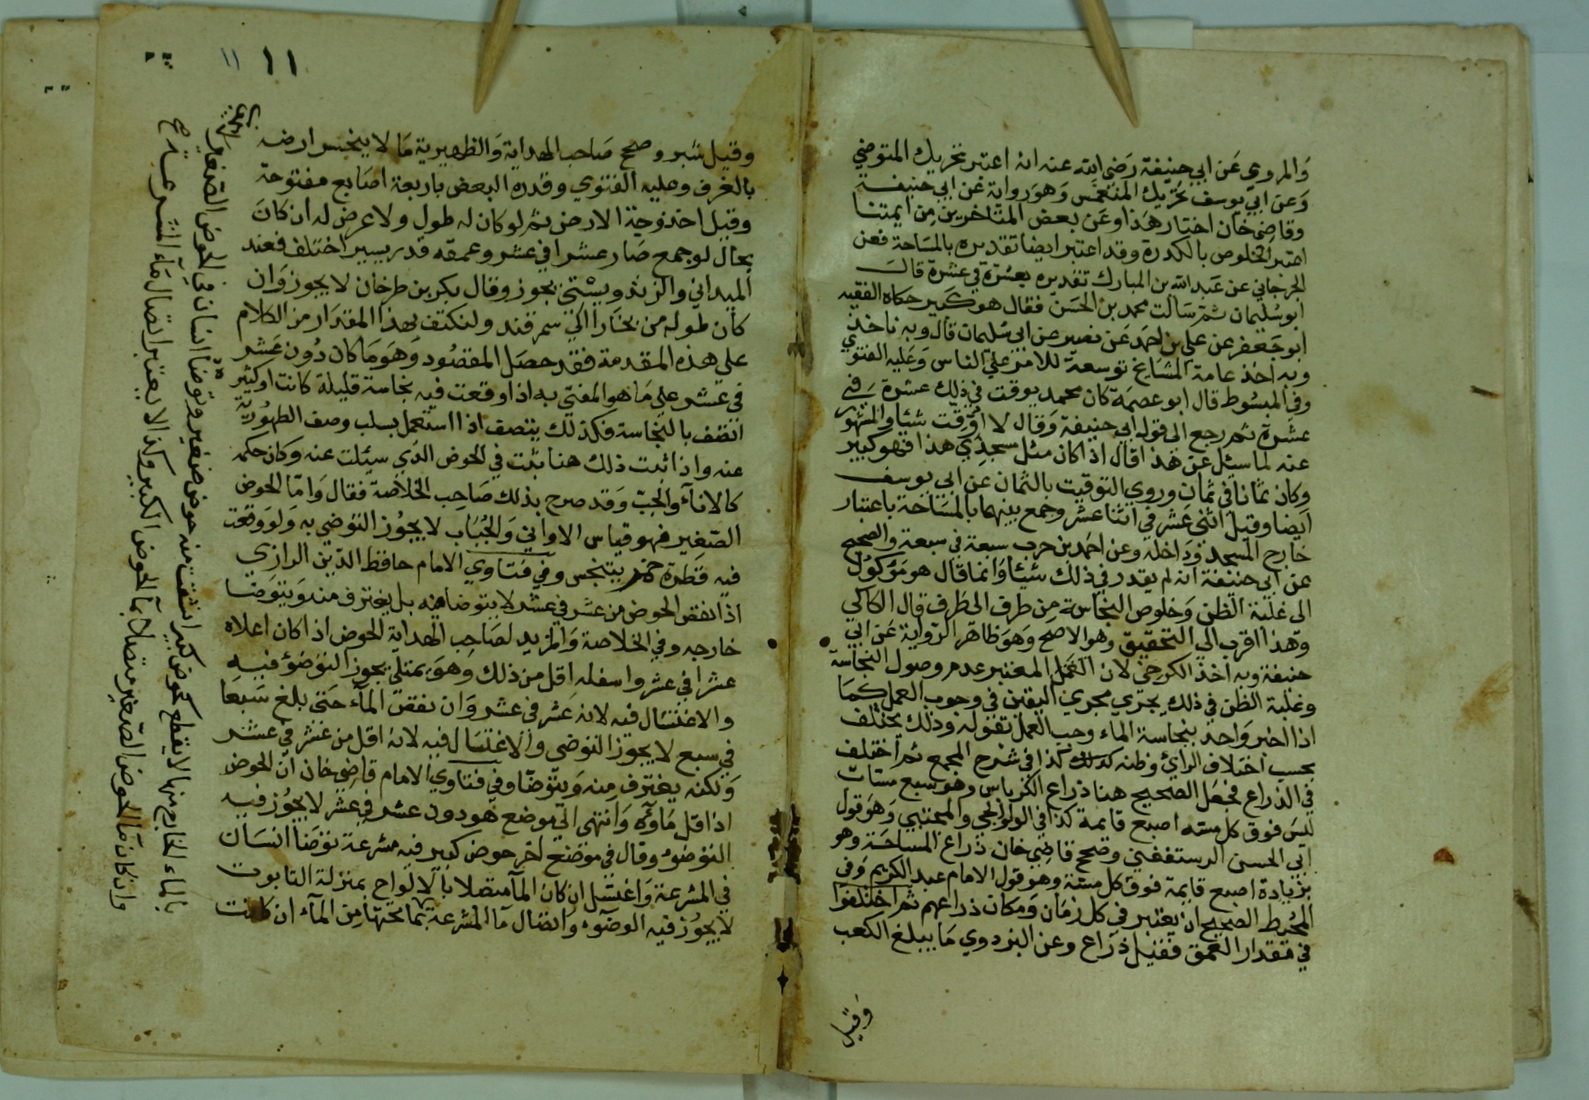 والمروي عن ابي حنيفة رضي الله عنه انه اعتبر تحريك المتوضي
وعن ابي يوسف تحريك المنغمس وهو رواية عن ابي حنيفة
وقاضي خان اختار هذا وعن بعض المتاخرين من ايمتنا
اعتبر الخلوص بالكدرة وقد اعتبر ايضا تقديره بالمساحة فعن
الجرجاني عن عبد الله بن المبارك تقديره بعشرة في عشرة قال
ابو سليمان ثم سالت محمد بن الحسن فقال هو كبير حكاه الفقيه
ابو جعفر عن علي بن احمد عن نصير عن ابي سليمان قال وبه ناخذ
وبه اخذ عامة المشايخ توسعة للامر علي الناس وعليه الفتوي
وفي المبسوط قال ابو عصمة كان محمد يوقت في ذلك عشرة في
عشرة ثم رجع الى قول ابي حنيفة وقال لا اوقت شيئا والمشهور
عنه لما سئل عن هذا قال اذا كان مثل مسجدي هذا فهو كبير
وكان ثمانا في ثمان وروي التوقيت بالثمان عن ابي يوسف
ايضا وقيل اثني عشر في اثنا عشر وجمع بينهما بالمساحة باعتبار
خارج المسجد وداخله وعن احمد بن حرب سبعة في سبعة والصحيح
عن ابي حنيفة انه لم يقدر في ذلك شيئا وانما قال هو موكول
الى غلبة الظن وخلوص النجاسة من طرف الى طرف قال الكاكي
وهذا اقرب الي التحقيق وهو الاصح وهو ظاهر الرواية عن ابي
حنيفة وبه اخذ الكرخي لان العمل المعتبر عدم وصول النجاسة
وغلبة الظن في ذلك يجري مجري اليقين في وجوب العمل كما
اذا اخبر واحد بنجاسة الماء وجب العمل بقوله وذلك يختلف
بحسب اختلاف الراي وظنه كذا في شرح المجمع ثم اختلف
في الذراع فجعل الصحيح هنا ذراع الكرباس وهو سبع مشتات
ليس فوق كل مشته اصبع قايمة كذا في الولوالجي والمجتبي وهو قول
ابي الحسن الرستغفني وصحح قاضي خان ذراع المساحة وهو
بزيادة اصبع قايمة فوق كل مشتة وهو قول الامام عبد الكريم وفي
المحيط الصحيح ان يعتبر في كل زمان ومكان ذراعهم ثم اختلفوا
في مقدار العمق فقيل ذراع وعن البزدوي ما يبلغ الكعب
وقيل
١١ ١١
وقيل شبر وصحح صاحب الهداية والظهيرية ما لا ينحسر ارضه
بالغرف وعليه الفتوي وقدره البعض باربعة اصابع مفتوحة
وقيل اخذ وجه الارض ثم لو كان له طول ولا عرض له ان كان
بحال لو جمع صار عشرا في عشر وعمقه قدر يسير اختلف فعند
الميداني والزندويستي يجوز وقال بكر بن طرخان لا يجوز وان
كان طوله من بخارا الي سمرقند ولنكتف بهذا المقدار من الكلام
علي هذه المقدمة فقد حصل المقصود وهو ما كان دون عشر
في عشر علي ما هو المفتي به اذا وقعت فيه نجاسة قليلة كانت او كثير
اتصف بالنجاسة فكذلك يتصف اذا استعمل بسلب وصف الطهورية
عنه واذا ثبت ذلك هنا ثبت في الحوض الذي سيئلت عنه وكان حكمه
كالاناء والجب وقد صرح بذلك صاحب الخلاصة فقال واما الحوض
الصغير فهو قياس الاواني والجباب لا يجوز التوضي به ولو وقعت
فيه قطرة خمر يتنجس وفي فتاوي الامام حافظ الدين الرازي
اذا نقص الحوض من عشر في عشر لا يتوضا منه بل يغترف منه ويتوضا
خارجه وفي الخلاصة والمزيد لصاحب الهداية الحوض اذا كان اعلاه
عشرا في عشر واسفله اقل من ذلك وهو يمتلي يجوز التوضؤ فيه
والاغتسال فيه لانه عشر في عشر وان نقص المآء حتى بلغ سبعا
في سبع لا يجوز التوضي والاغتسال فيه لانه اقل من عشر في عشر
ولكنه يغترف منه ويتوضا وفي فتاوي الامام قاضي خان ان الحوض
اذا قل ماوه وانتهى الي موضع هو دون عشر في عشر لا يجوز فيه
التوضوء وقال في موضع اخر حوض كبير فيه مشرعة توضا انسان
في المشرعة واغتسل ان كان المآ متصلا بالالواح بمنزلة التابوت
لا يجوز فيه الوضوء واتصال مآ المشرعة بما تحتها من المآء ان كانت
حوض كبير انشقت منه حوض صغير وتوضأ انسان في الحوض الصغير
وان كان مآ الحوض الصغير متصلا بمآ الحوض الكبير وكذا لا يعتبر اتصال مآء المشرعة
بالماء الخارج منها لا ينقطع